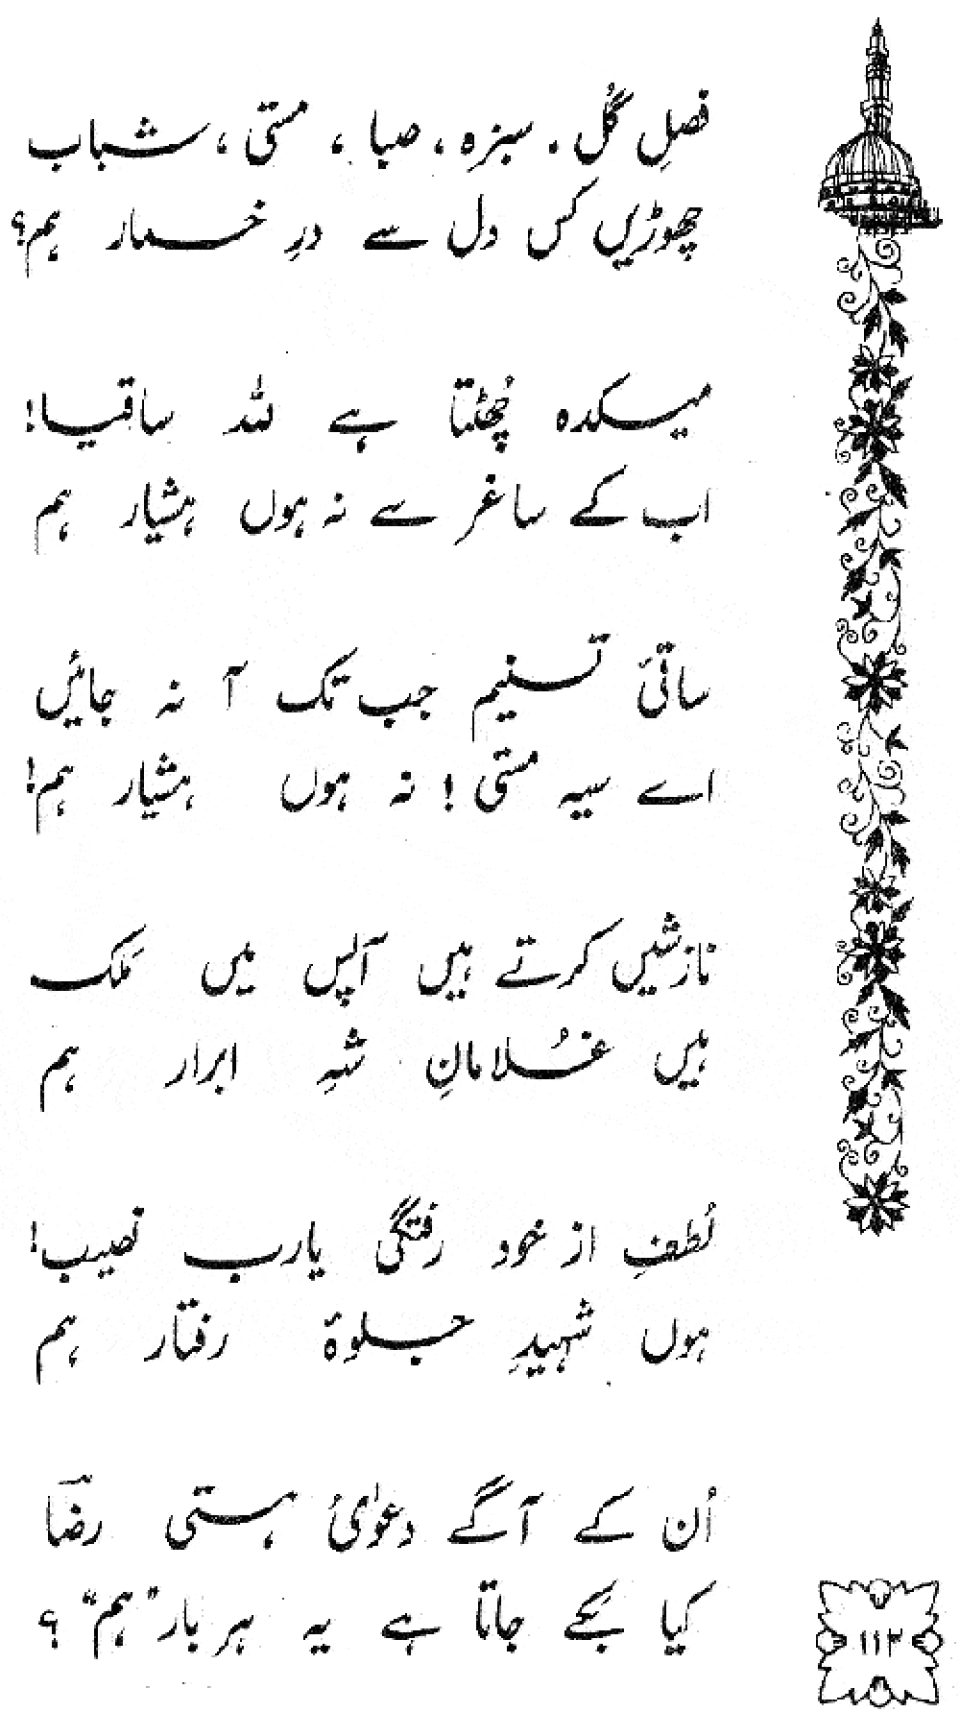 فصلِ گُل، سبزہ، صبا، مستی، شباب
چھوڑیں کس دل سے درِ خمار ہم؟
میکدہ چُھٹتا ہے للہ ساقیا!
اب کے ساغر سے نہ ہوں ہشیار ہم
ساقیٔ تسنیم جب تک آ نہ جائیں
اے سیہ مستی! نہ ہوں ہشیار ہم!
نازشیں کرتے ہیں آپس میں مَلک
ہیں غُلامانِ شہِ ابرار ہم
لُطفِ از خود رفتگی یارب نصیب!
ہوں شہیدِ جلوۂ رفتار ہم
اُن کے آگے دعویٰٔ ہستی رضاؔ
کیا بکے جاتا ہے یہ ہر بار "ہم"؟
۱۱۲